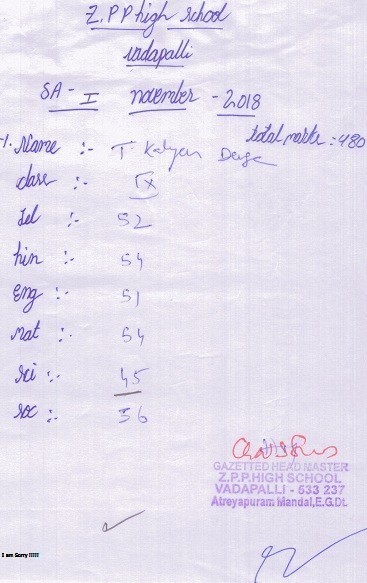 Z.P.P high school
vadapalli
SA - I november - 2018
Total marks :- 480
Name :- T. Kalyan
class :- IX
tel :- 52
hin :- 54
eng :- 51
mat :- 54
sci :- 45
soc :- 56
GAZETTED HEAD MASTER
Z.P.P.HIGH SCHOOL
VADAPALLI - 533 237
Atreyapuram Mandal,E.G.Dt.
I am Sorry !!!!!